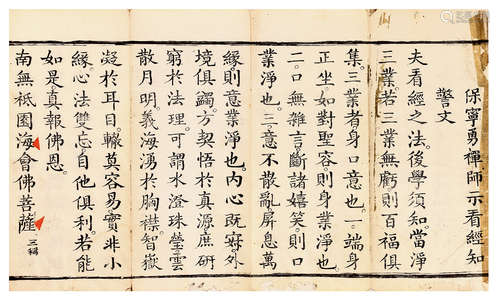 保寧勇禪師示看經知
警文
夫看經之法。後學須知。當淨
三業。若三業無虧。則百福俱
集。三業者。身口意也。一端身
正坐。如對聖容。則身業淨也
二口無雜言。斷諸嬉笑。則口
業淨也。三意不散亂。屏息萬
緣。則意業淨也。內心既寂。外
境俱蠲。方契悟於真源。庶研
窮於法理。可謂水澄珠瑩。雲
散月明。義海湧於胸襟。智嶽
凝於耳目。輙莫容易。實非小
緣。心法雙忘。自他俱利。若能
如是。真報佛恩。
南無祇園海會佛菩薩 三稱